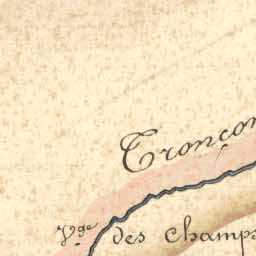 Tronçon
Vge des Champs